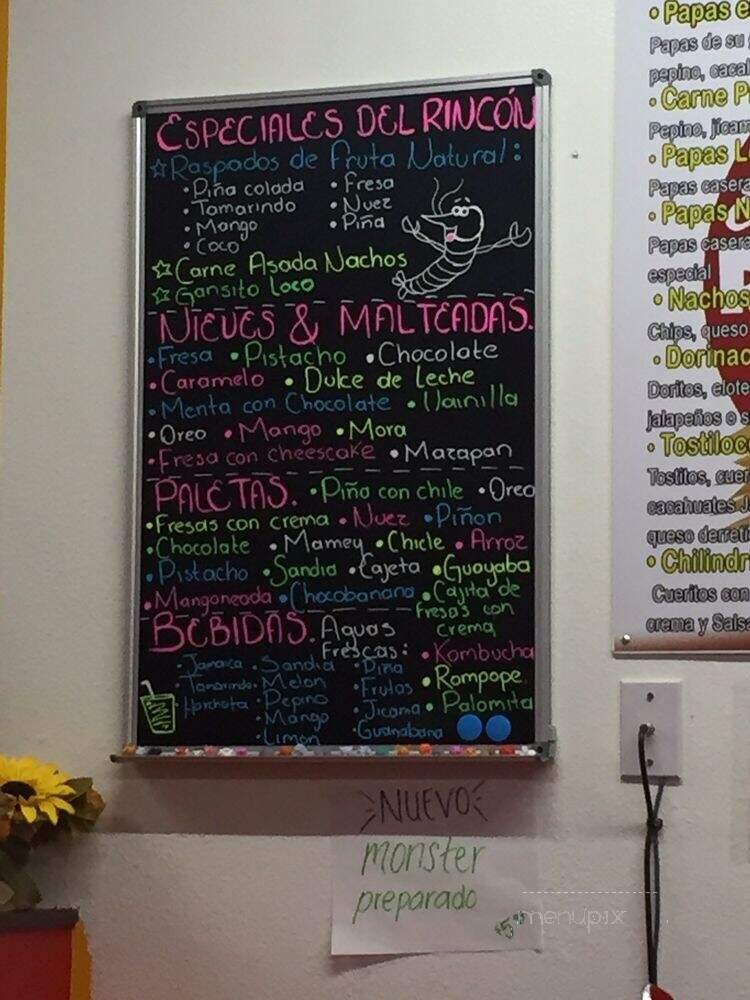 ESPECIALES DEL RINCÓN
☆Raspados de Fruta Natural:
•Piña colada •Fresa
•Tamarindo •Nuez
•Mango •Piña
•Coco
☆Carne Asada Nachos
☆Gansito Loco
NIEVES & MALTEADAS.
•Fresa •Pistacho •Chocolate
•Caramelo •Dulce de Leche
•Menta con Chocolate •Vainilla
•Oreo •Mango •Mora
•Fresa con cheescake •Mazapan
PALETAS. •Piña con chile •Oreo
•Fresas con crema •Nuez •Piñon
•Chocolate •Mamey •Chicle •Arroz
•Pistacho •Sandia •Cajeta •Guayaba
•Mangoneada •Chocobanana •Cajita de
Fresas con
crema
BEBIDAS. Aguas
Frescas:
•Jamaica •Sandia •Piña
•Tamarindo •Melon •Frutos
•Horchata •Pepino •Jicama
•Mango •Guanabana
•Limon
•Kombucha
•Rompope
•Palomita
NUEVO
monster
preparado
menupix
• Papas
Papas de su
pepino,
• Carne
Pepino,
• Papas
Papas
• Papas
Papas
especial
• Nachos
Chips, queso
•
Doritos,
jalapeños o
•
Tostitos,
cacahuates
queso
•
Cueritos con
crema y